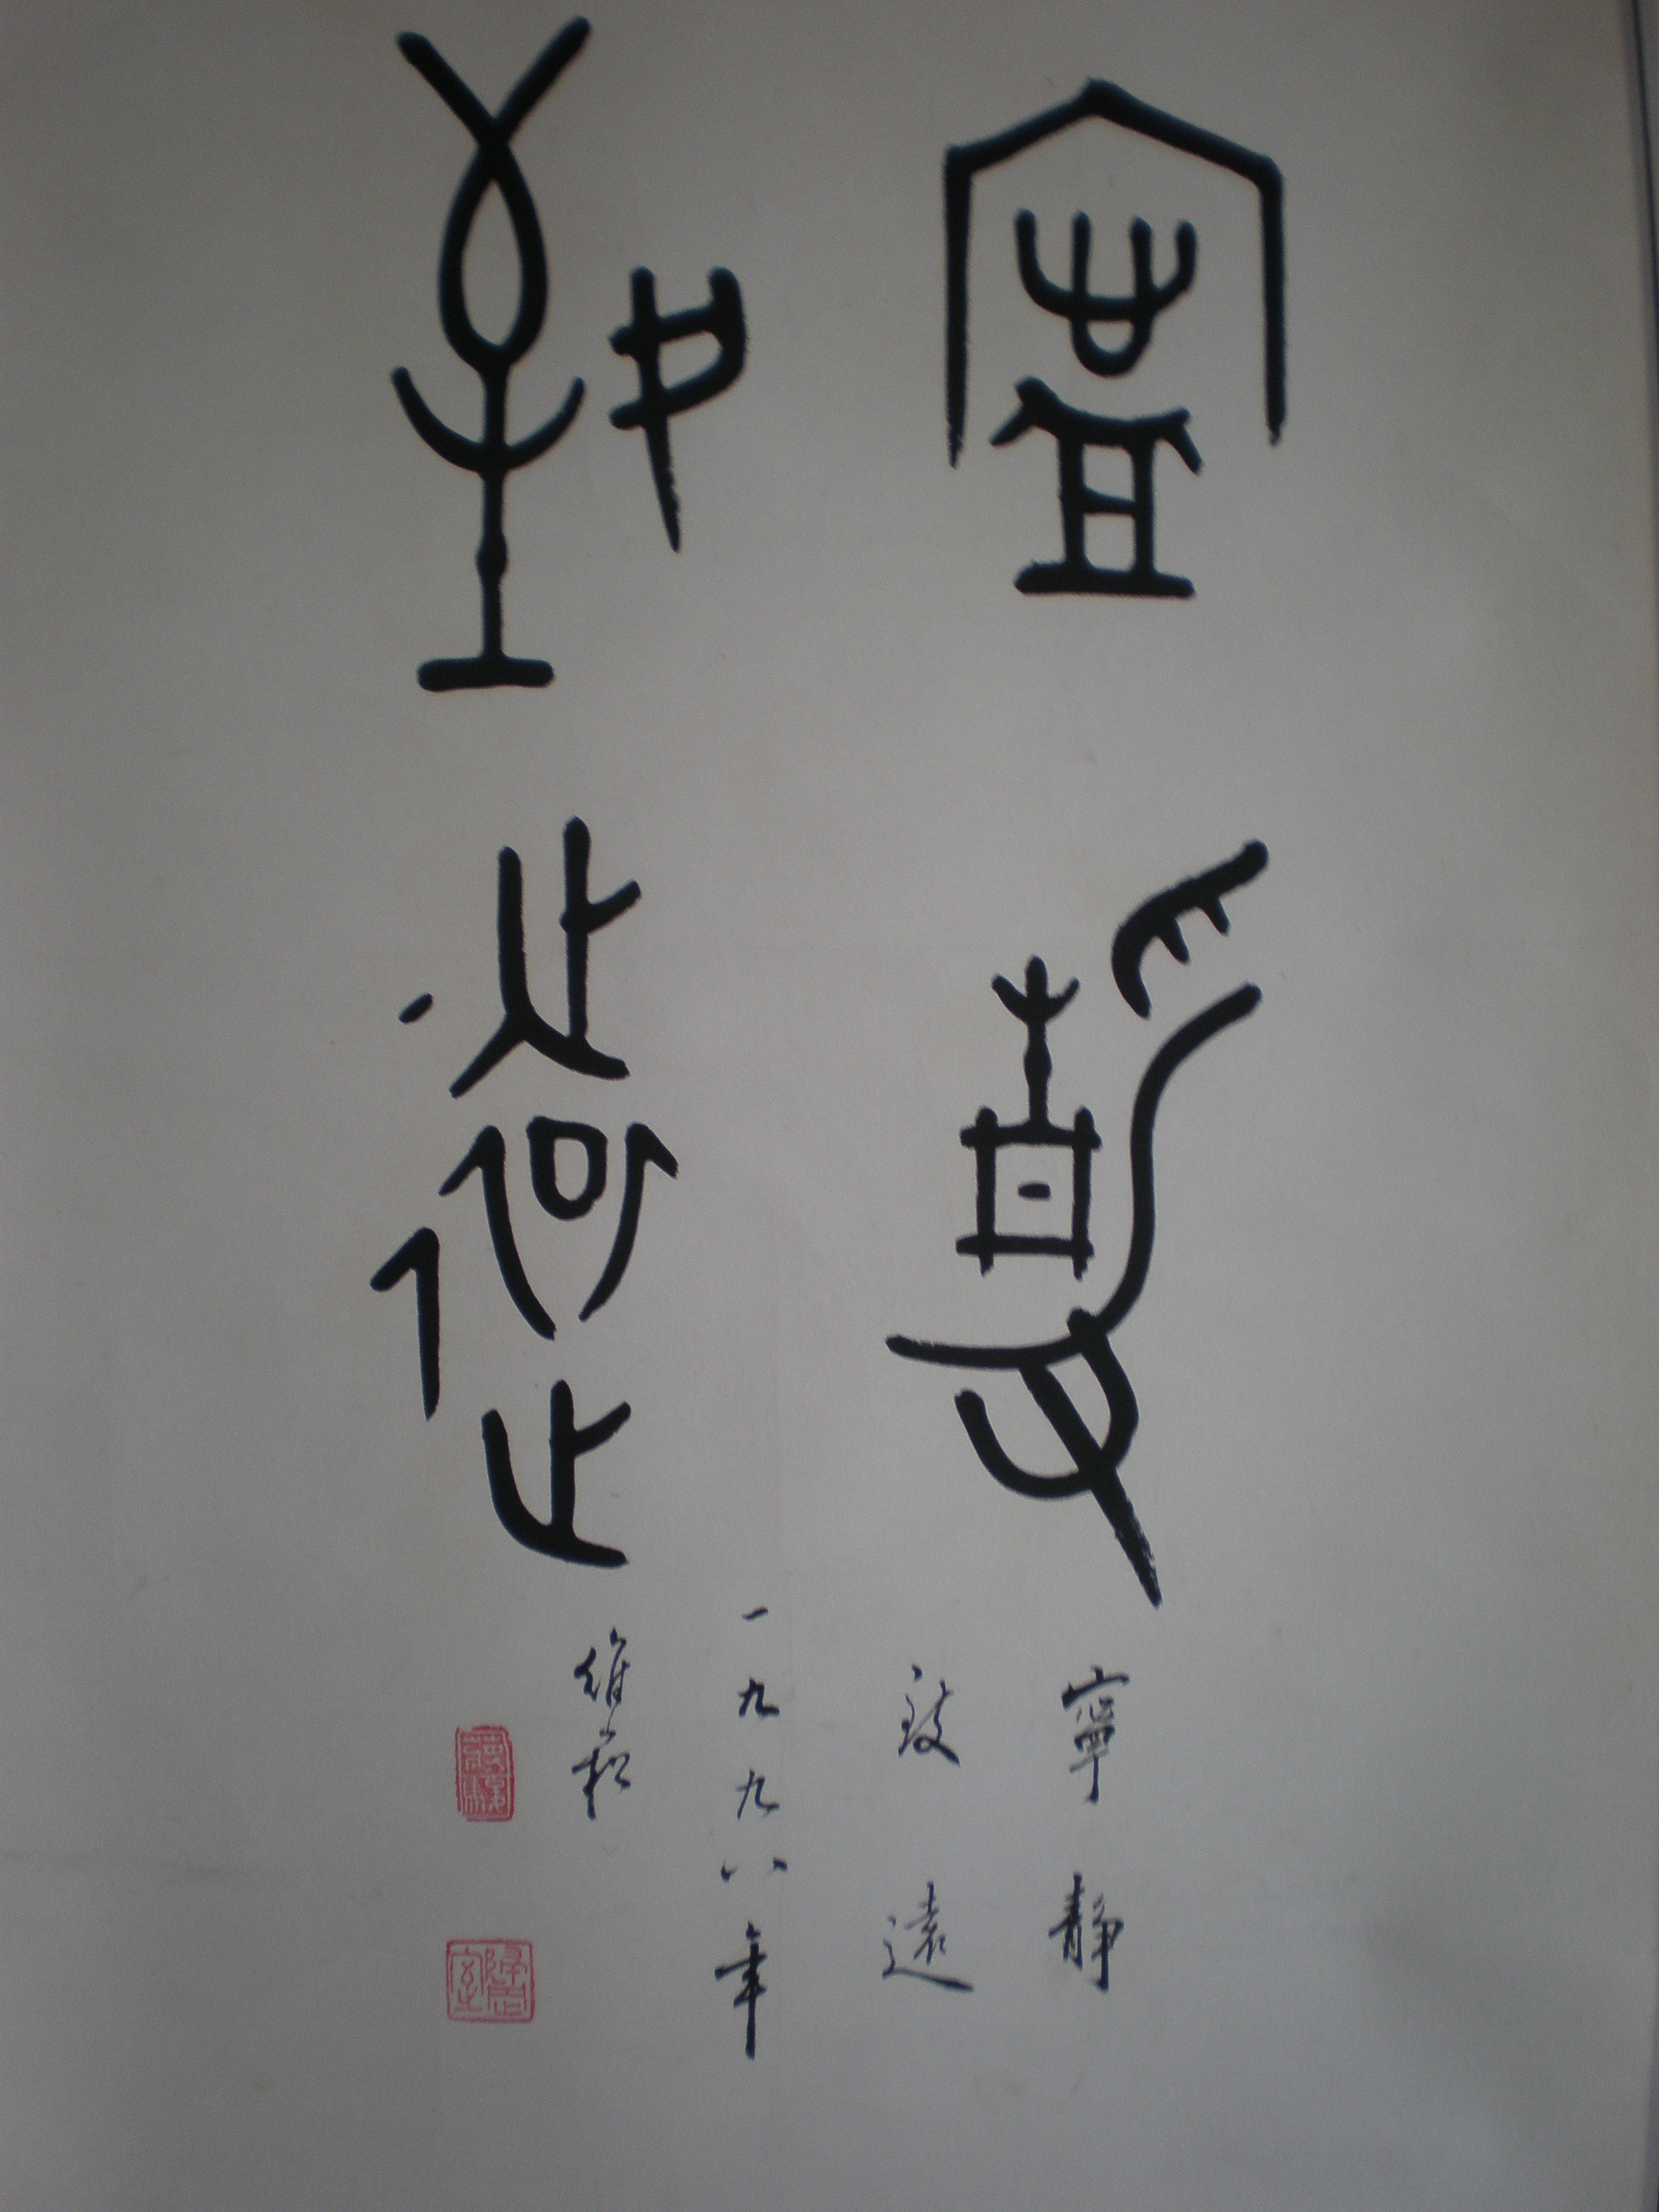 寧靜
致遠
寧靜
致遠
一九九八年